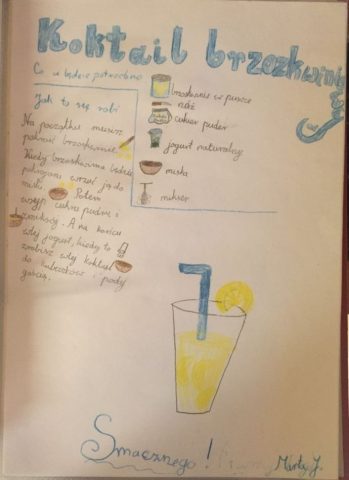 Koktail brzozkwiniowy
Co ci będzie potrzebne
brzoskwinie w puszce
nóż
cukier puder
jogurt naturalny
miska
mikser
Jak to się robi
Na początku musisz
pokroić brzoskwinie
Kiedy brzoskwinia będzie
pokrojona wrzuć ją do
miski. Potem
wsyp cukier puder i
zmiksuj. A na końcu
wlej jogurt, kiedy to
zrobisz wlej koktail
do kubeczków i podaj
gością.
Smacznego!
Marta J.